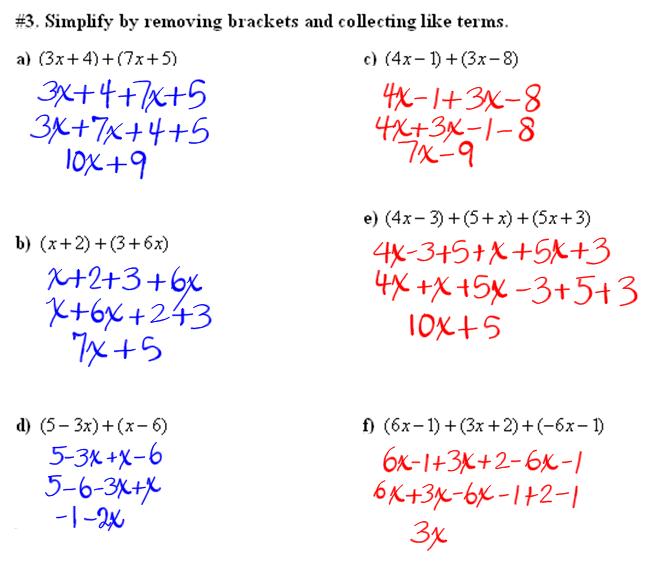 #3. Simplify by removing brackets and collecting like terms.
a) (3x+4)+(7x+5)
3x+4+7x+5
3x+7x+4+5
10x+9
b) (x+2)+(3+6x)
x+2+3+6x
x+6x+2+3
7x+5
d) (5-3x)+(x-6)
5-3x+x-6
5-6-3x+x
-1-2x
c) (4x-1)+(3x-8)
4x-1+3x-8
4x+3x-1-8
7x-9
e) (4x-3)+(5+x)+(5x+3)
4x-3+5+x+5x+3
4x+x+5x-3+5+3
10x+5
f) (6x-1)+(3x+2)+(-6x-1)
6x-1+3x+2-6x-1
6x+3x-6x-1+2-1
3x